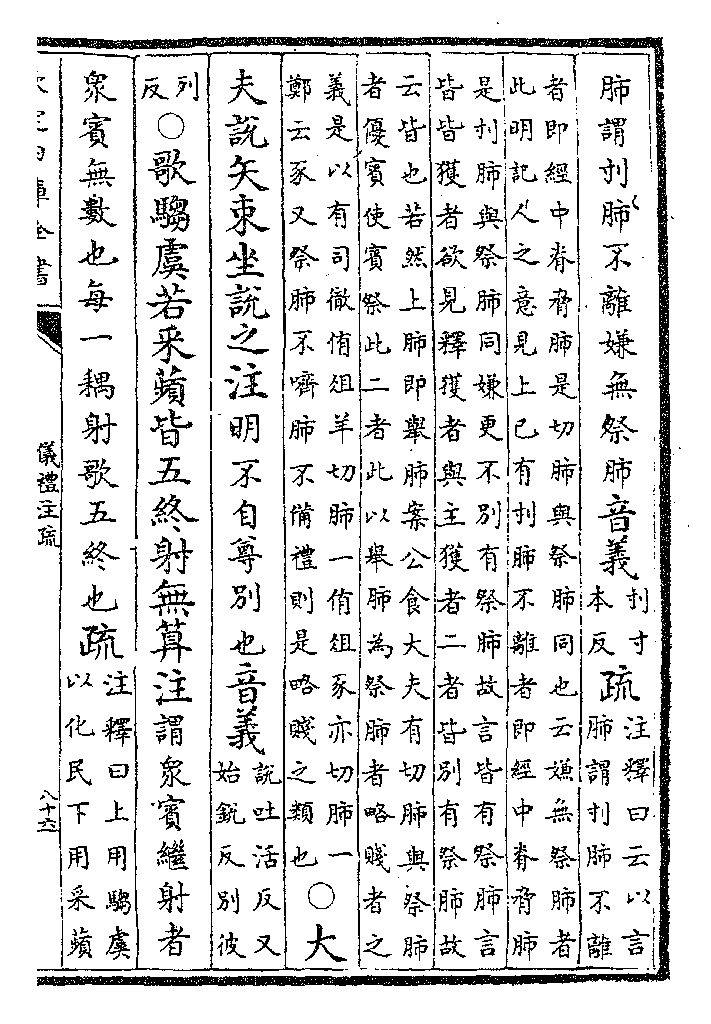 肺謂刌肺不離嫌無祭肺音義刌寸本反疏注釋曰云以言肺謂刌肺不離
者即經中脊脅肺是切肺與祭肺同也云嫌無祭肺者
此明記人之意見上已有刌肺不離者即經中脊脅肺
是刌肺與祭肺同嫌更不別有祭肺故言皆有祭肺言
皆皆獲者欲見釋獲者與主獲者二者皆別有祭肺故
云皆也若然上肺即舉肺案公食大夫有切肺與祭肺
者優賓使賓祭此二者此以舉肺為祭肺者略賤者之
義是以有司徹侑俎羊切肺一侑俎豕亦切肺一
鄭云豕又祭肺不嚌肺不備禮則是略賤之類也○大
夫說矢束坐說之注明不自尊別也音義說吐活反又始銳反別彼
列反○歌騶虞若采蘋皆五終射無算注謂眾賓繼射者
眾賓無數也每一耦射歌五終也疏注釋曰上用騶虞以化民下用采蘋
欽定四庫全書
儀禮注疏
八十六